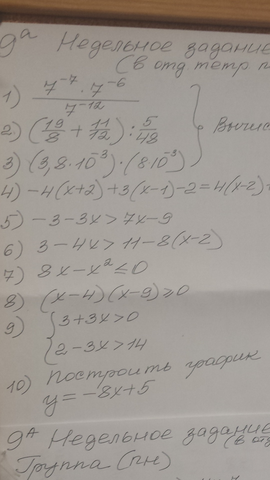 9а Недельное задание
(в отд тетр п
1) 7⁻⁷ · 7⁻⁶ / 7⁻¹²
2) (19/8 + 11/12) : 5/48
3) (3,8·10⁻³)·(8·10⁻³)
} Вычис
4) −4(x+2)+3(x−1)−2=4(x−2)+
5) −3−3x>7x−9
6) 3−4x>11−8(x−2)
7) 8x−x²≤0
8) (x−4)(x−9)≥0
9) { 3+3x>0
2−3x>14
10) Построить график
y=−8x+5
9А Недельное задание
(в от
Группа (пн)